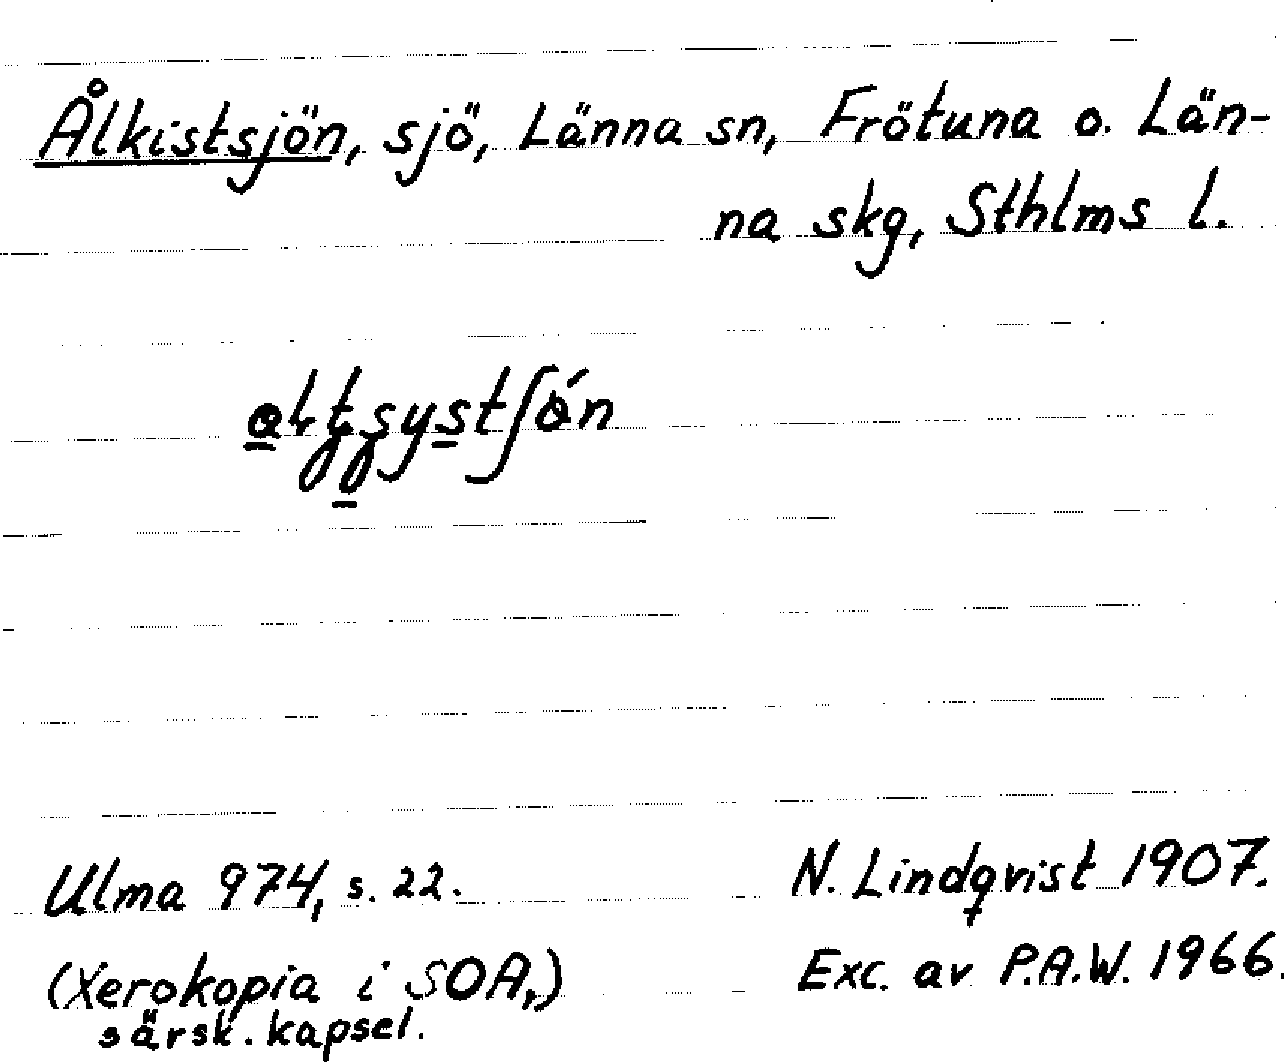 Ålkistsjön, sjö, Länna sn, Frötuna o. Län-
na skg, Sthlms l.
Ulma 974, s. 22.
N. Lindqvist 1907.
(Xerokopia i SOA,)
Exc. av P.A.W. 1966.
särsk. kapsel.